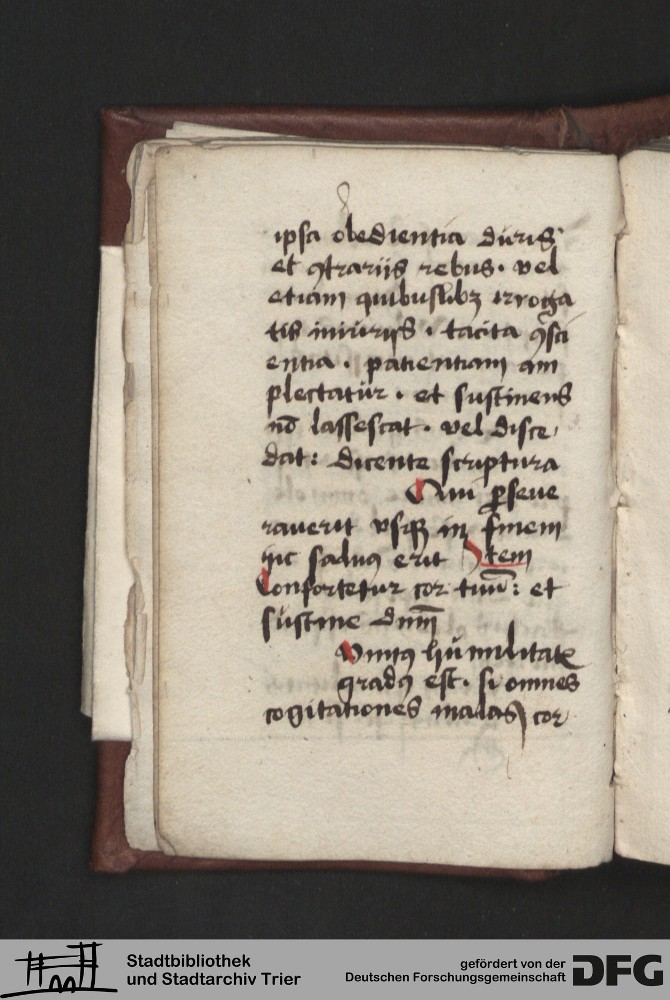 ipsa obedientia duris
et ꝯtrariis rebus · vel
etiam quibuslibꝫ irroga
tis iniuriis · tacita ꝯsci
entia · patientiam am
plectatur · et sustinens
nō lassescat · vel disce
dat : dicente scriptura
Qui ꝑseue
rauerit vsqꝫ in finem
hic saluꝰ erit Item
Confortetur cor tuū : et
sustine dnm̄
Quintꝰ humilitatis
gradꝰ est · si omnes
cogitationes malas cor
Stadtbibliothek
und Stadtarchiv Trier
gefördert von der
Deutschen Forschungsgemeinschaft
DFG